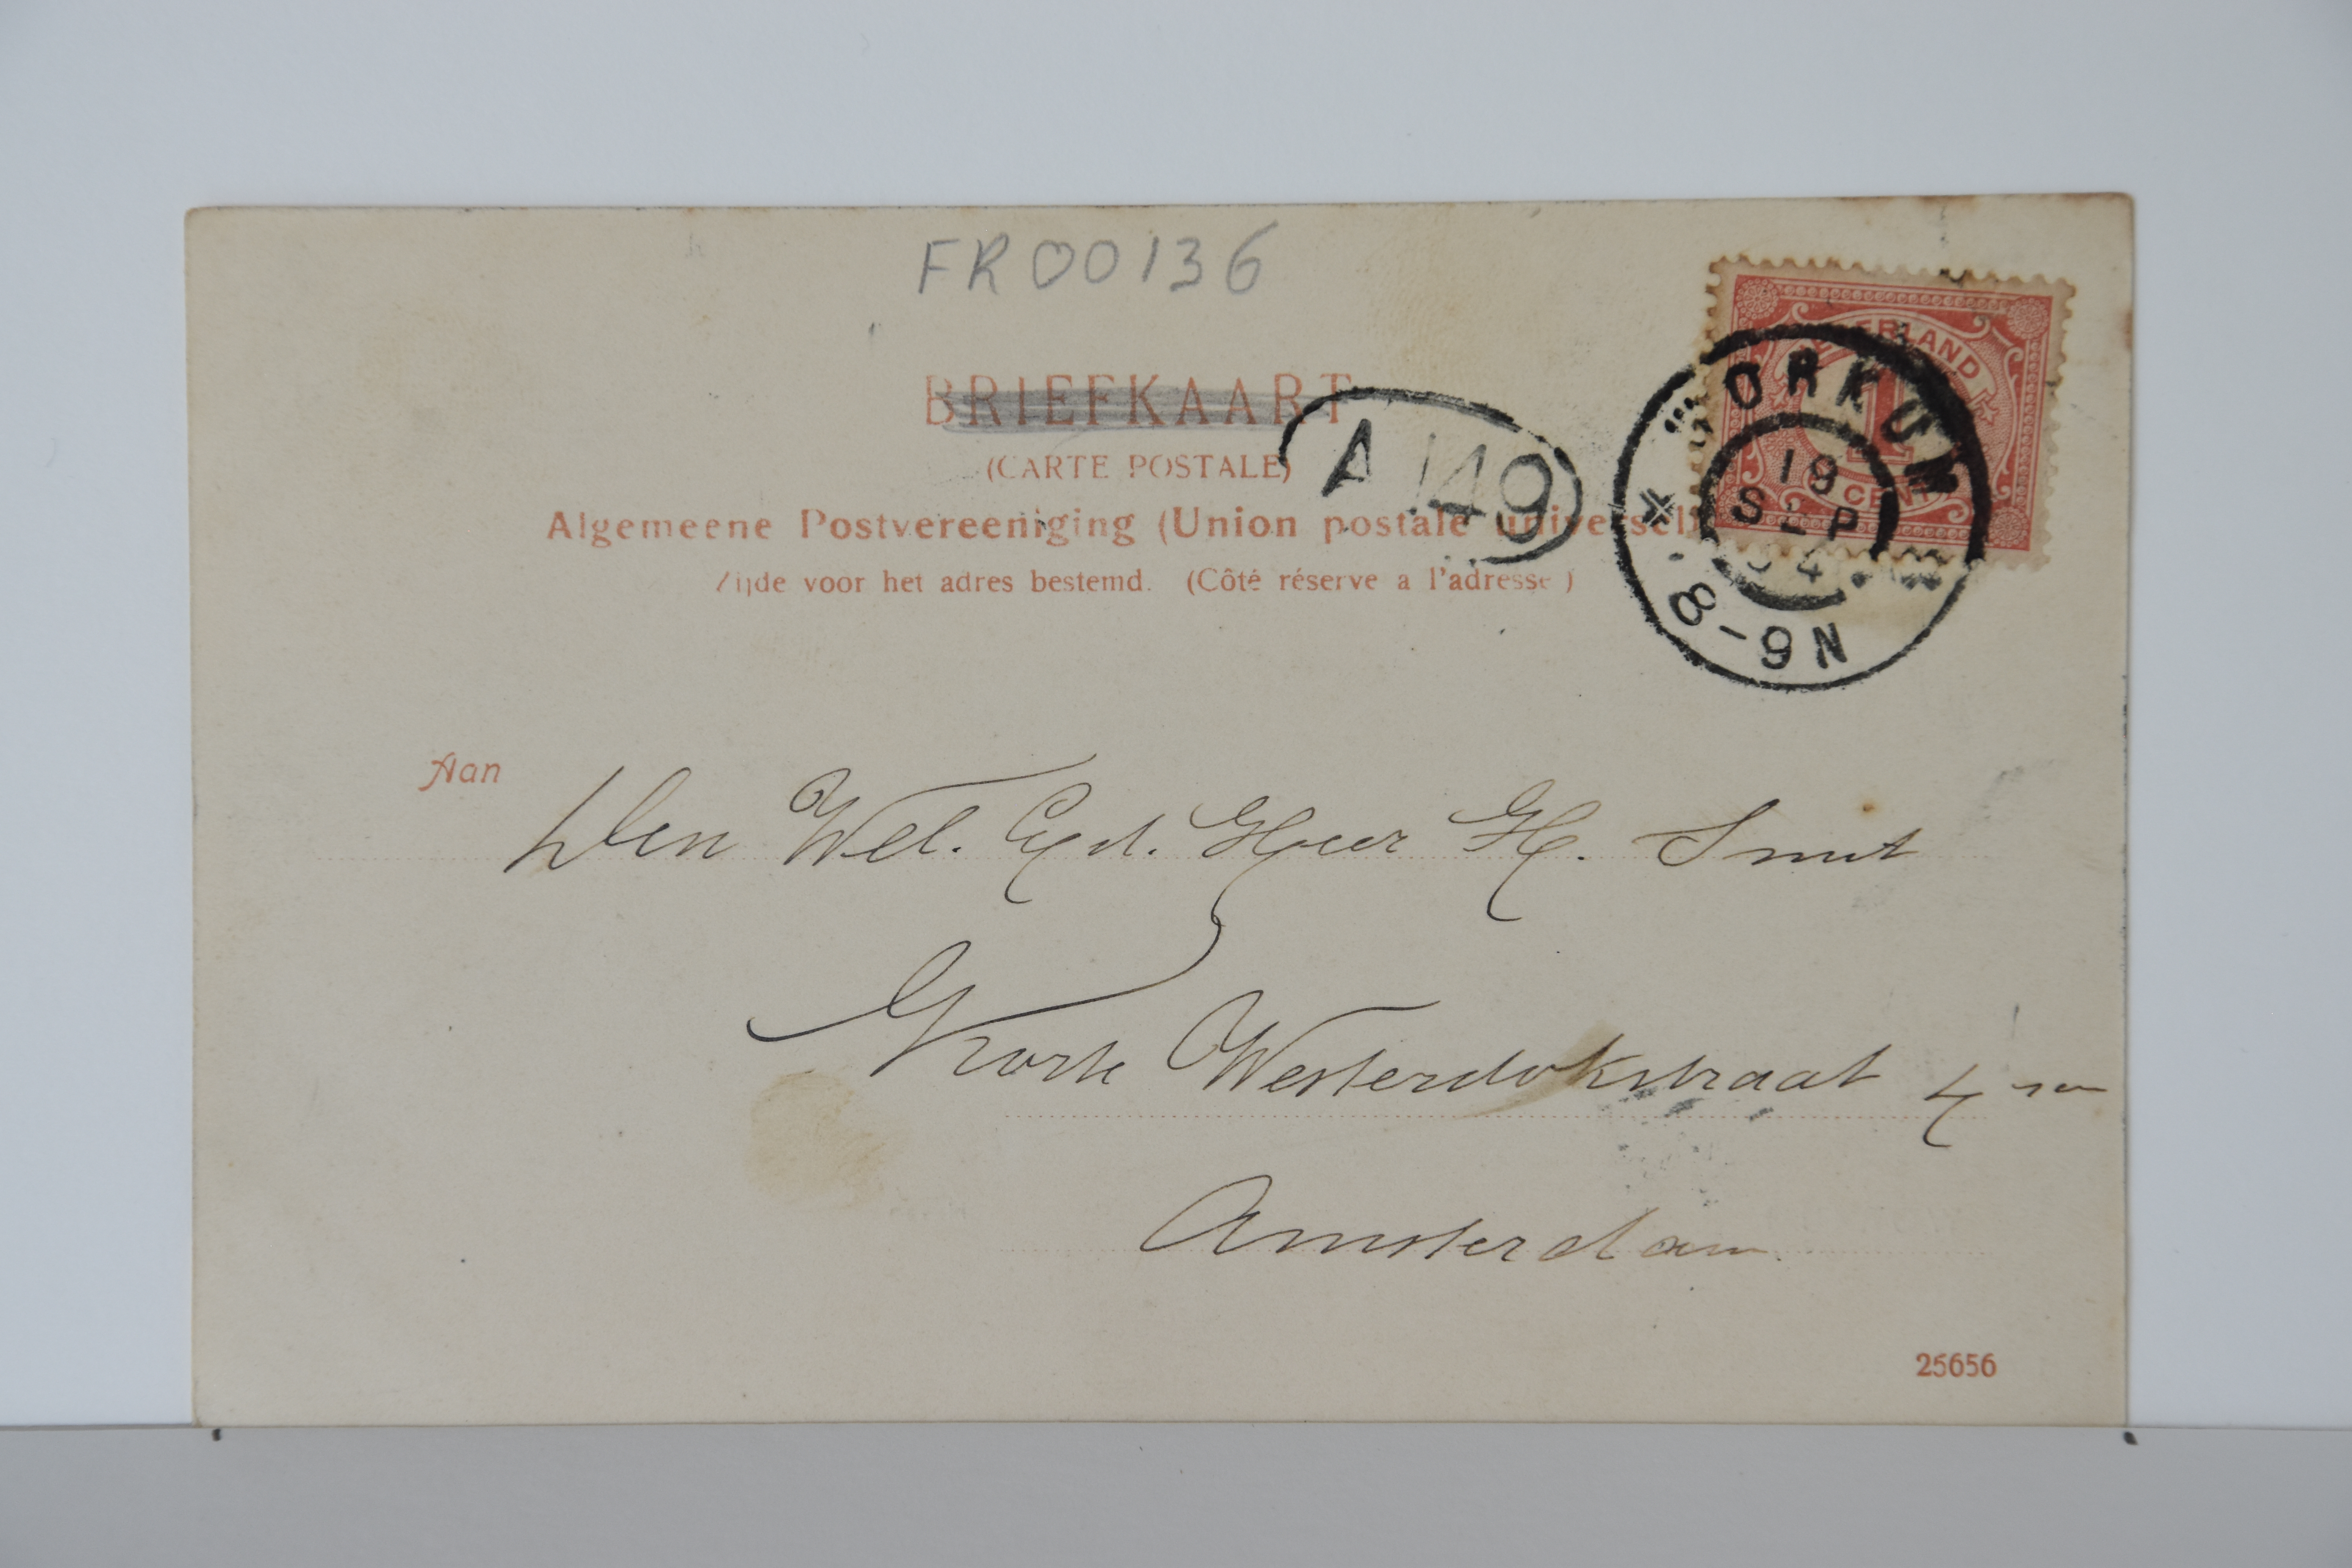 FR00136
NEDERLAND
1
CENT
BRIEFKAART
(CARTE POSTALE)
A 149
ORKUM
19
SEP
04
8-9N
Algemeene Postvereeniging (Union postale universell
Zijde voor het adres bestemd. (Côté réserve a l'adresse)
Aan
Den Wel. Ed. Heer H. Smit
Korte Westerdokstraat 4
Amsterdam
25656